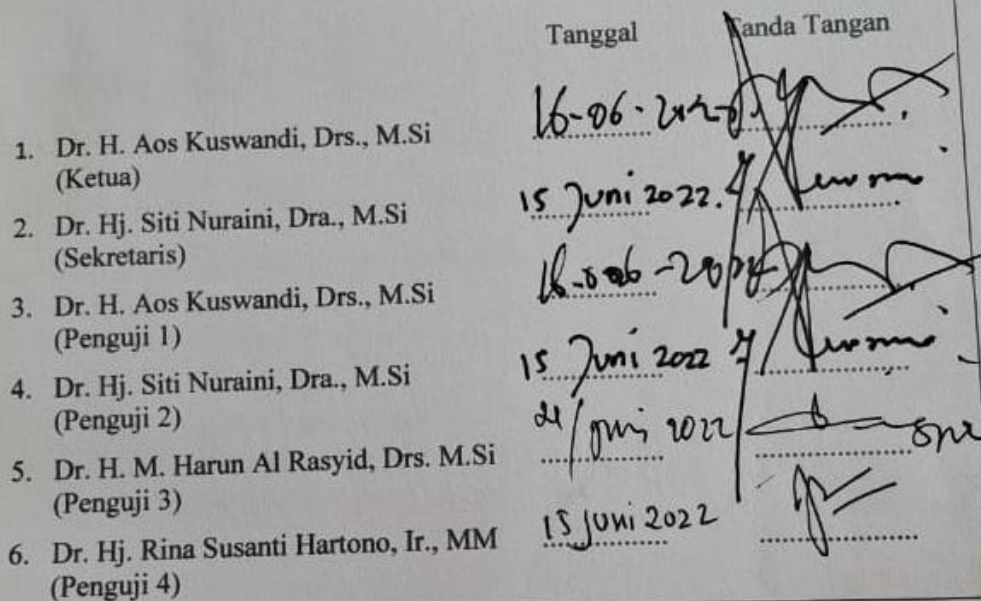 Tanggal Tanda Tangan
16-06-2022
1. Dr. H. Aos Kuswandi, Drs., M.Si
(Ketua)
15 Juni 2022.
2. Dr. Hj. Siti Nuraini, Dra., M.Si
(Sekretaris)
3. Dr. H. Aos Kuswandi, Drs., M.Si
(Penguji 1)
15 Juni 2022
4. Dr. Hj. Siti Nuraini, Dra., M.Si
(Penguji 2)
juni 2022
5. Dr. H. M. Harun Al Rasyid, Drs. M.Si
(Penguji 3)
15 Juni 2022
6. Dr. Hj. Rina Susanti Hartono, Ir., MM
(Penguji 4)